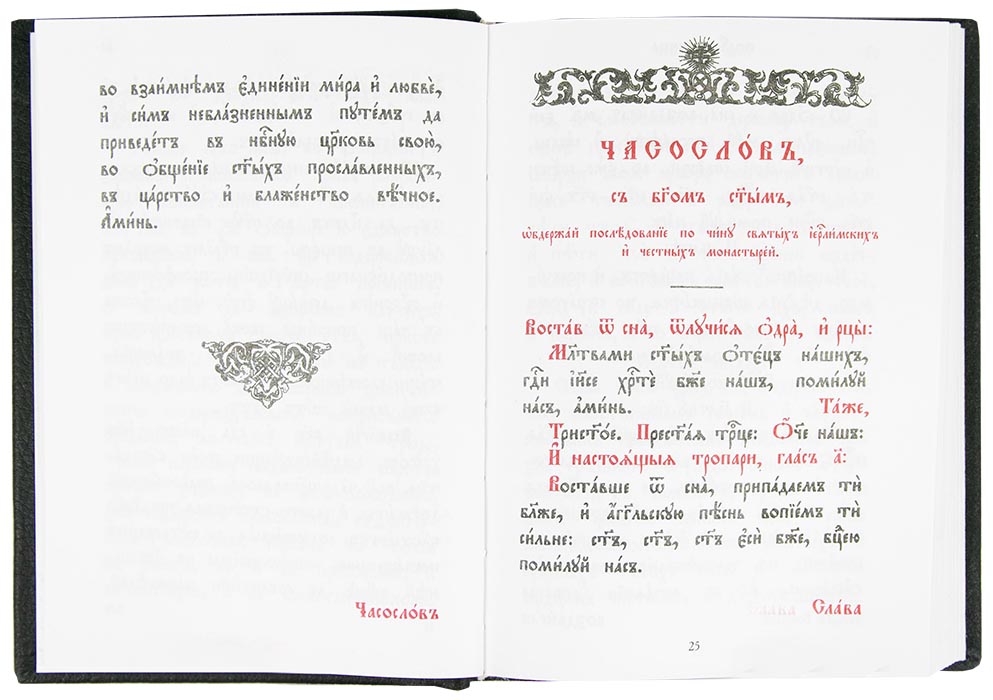 во взаи́мнѣмъ є҆дине́нїи ми́ра и҆ любвѐ,
и҆ си́мъ небла́зненнымъ путе́мъ да
приведе́тъ въ нбⷭ҇ную цр҃ковь свою̀,
во ѻ҆бще́нїе ст҃ы́хъ просла́вленныхъ,
въ ца́рство и҆ блаже́нство вѣ́чное.
А҆ми́нь.
Часосло́въ
ЧАСОСЛО́ВЪ,
съ бг҃омъ ст҃ы́мъ,
ѡ҆бдержа́й послѣ́дованїе по чи́ну свѧты́хъ і҆ерⷭ҇ли́мскихъ
и҆ честны́хъ монастыре́й.
Воста́въ ѿ сна̀, ѿлучи́сѧ ѻ҆дра̀, и҆ рцы̀:
Мл҃твами ст҃ы́хъ ѻ҆те́цъ на́шихъ,
гдⷭ҇и і҆и҃се хрⷭ҇тѐ бж҃е на́шъ, поми́луй
на́съ, а҆ми́нь. Та́же,
Трист҃о́е. Прест҃а́ѧ трⷪ҇це: Ѻ҆́ч҃е на́шъ:
И҆ настоѧ́щыѧ тропарѝ, гла́съ а҃:
Воста́вше ѿ сна̀, припа́даемъ тѝ
бл҃же, и҆ а҆́гг҃льскую пѣ́снь вопїе́мъ тѝ
си́льне: ст҃ъ, ст҃ъ, ст҃ъ є҆сѝ бж҃е, бцⷣею
поми́луй на́съ.
Сла́ва Сла́ва
25